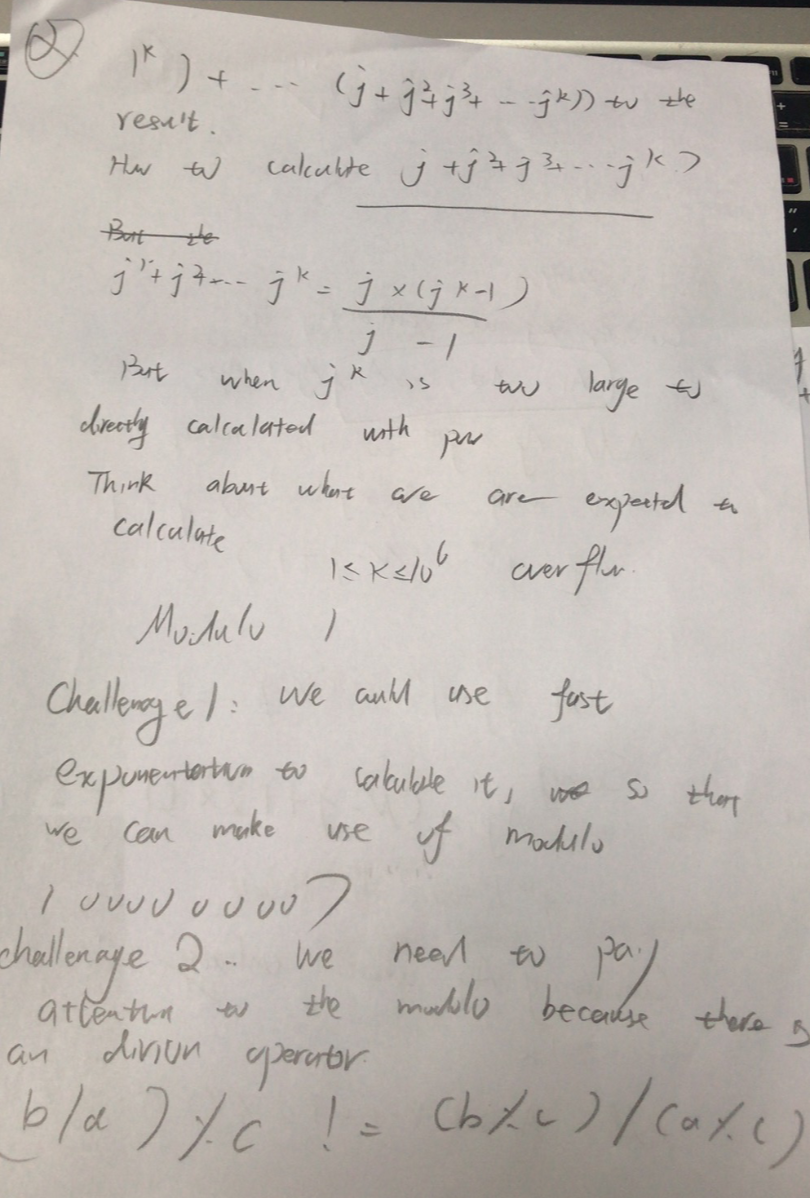 ②
1^k ) + ... (j + j^2 + j^3 + - - j^k)) to the
result.
How to calculate j + j^2 + j^3 + ... j^k ?
But the
j^1 + j^2 + ... j^k = j × (j^k - 1) / j - 1
But when j^k is too large to
directly calculated with pow
Think about what are are expected to
calculate
1 ≤ K ≤ 10^6 overflow.
Modulo 1
Challenge 1: we could use fast
exponentiation to calculate it, we so that
we can make use of modulo
1000000007
challenage 2.. we need to pay
attention to the modulo because there is
an division operator.
(b/a) % c != (b % c) / (a % c)